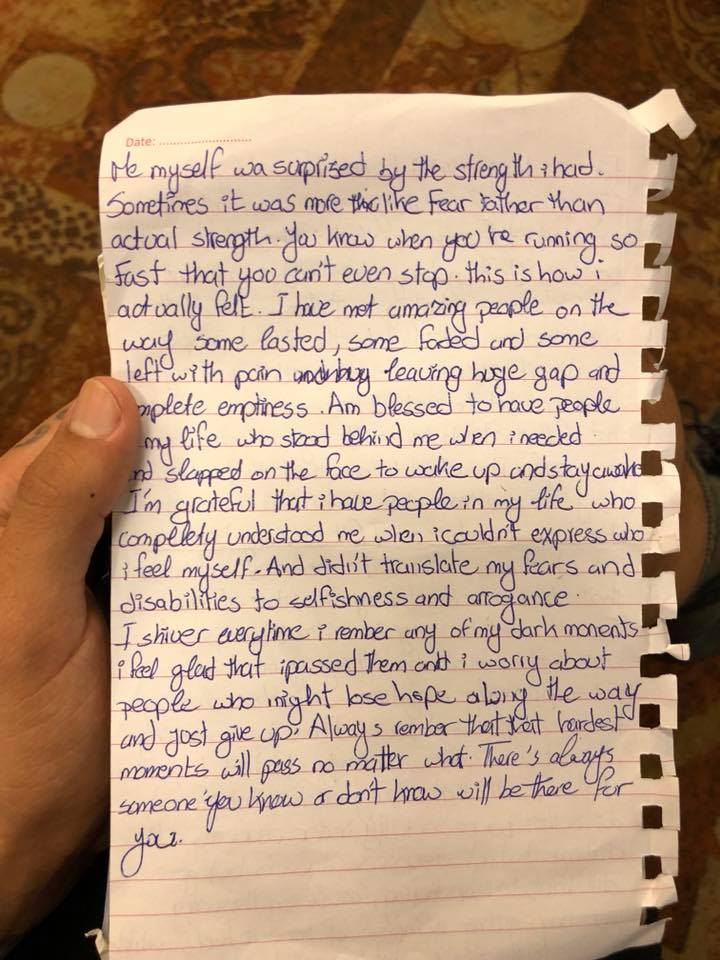 Date: ..........................
Me myself wa surprized by the strength i had.
Sometimes it was more like Fear rather than
actual strength. You know when you're running so
fast that you can't even stop. this is how i
actually felt. I have met amazing people on the
way some lasted, some faded and some
left with pain leaving huge gap and
mplete emptiness. Am blessed to have people
my life who stood behind me when i needed.
nd slapped on the face to wake up and stay awake
I'm grateful that i have people in my life who
completely understood me when i couldn't express who
i feel myself. And didn't translate my fears and
disabilities to selfishness and arrogance.
I shiver everytime i rember any of my dark moments
i feel glad that i passed them and i worry about
people who might lose hope along the way
and just give up. Always rember that that hardest
moments will pass no matter what. There's always
someone you know or don't know will be there for
you.